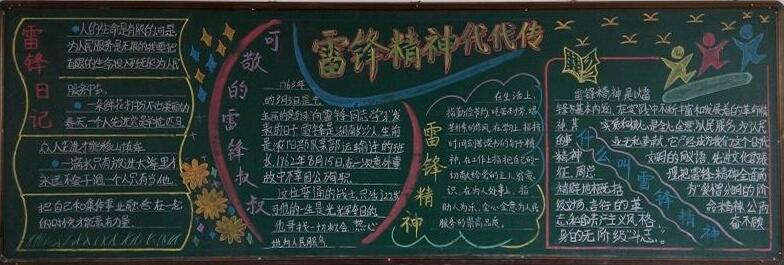 雷锋精神代代传
雷锋日记
人的生命是有限的可是
为人民服务是无限的我要把
有限的生命投入到无限为人民
服务中去
一朵鲜花打扮不出美丽的
春天一个人先进总是单枪匹马
众人先进才能移山填海
一滴水只有放进大海里才
永远不会干涸一个人只有当他
把自己和集体事业融合在一起
的时候才能有力量
可敬的雷锋叔叔
1963年
的3月5日
向雷锋同志学习发
表的日子雷锋是湖南长沙人生前
是沈阳部队某部运输连的班
长1962年8月15日在一次意外事
故中不幸因公殉职
22岁
可他的一生是光辉
也寻找一切机会,热心
地为人民服务
雷锋精神
在生活上:
指勤俭节约,吃苦耐劳,艰
苦朴素的作风.在学习上.指挤
时间刻苦读书的钉子精
神,在工作上指把自己的一
切献给党的主人翁意
识,在为人处事上,指
助人为乐,全心全意为人民
服务的崇高品质.
什么叫雷锋精神
雷锋精神是以雷
锋
基本内涵,在实践中不断丰富和发展着的革命精
神其
实质和核心是全心全意为人民服务,为人民
的
无私奉献,它已经成为我们这个时代
精神
文明的同义语,先进文化的表
征.周总
理把雷锋精神全面而
精辟地概括
为“爱憎分明的阶
级立场,言行一致的革
命精神公而
忘私的共产主义风格,
奋不顾
身的无产阶级斗志.”